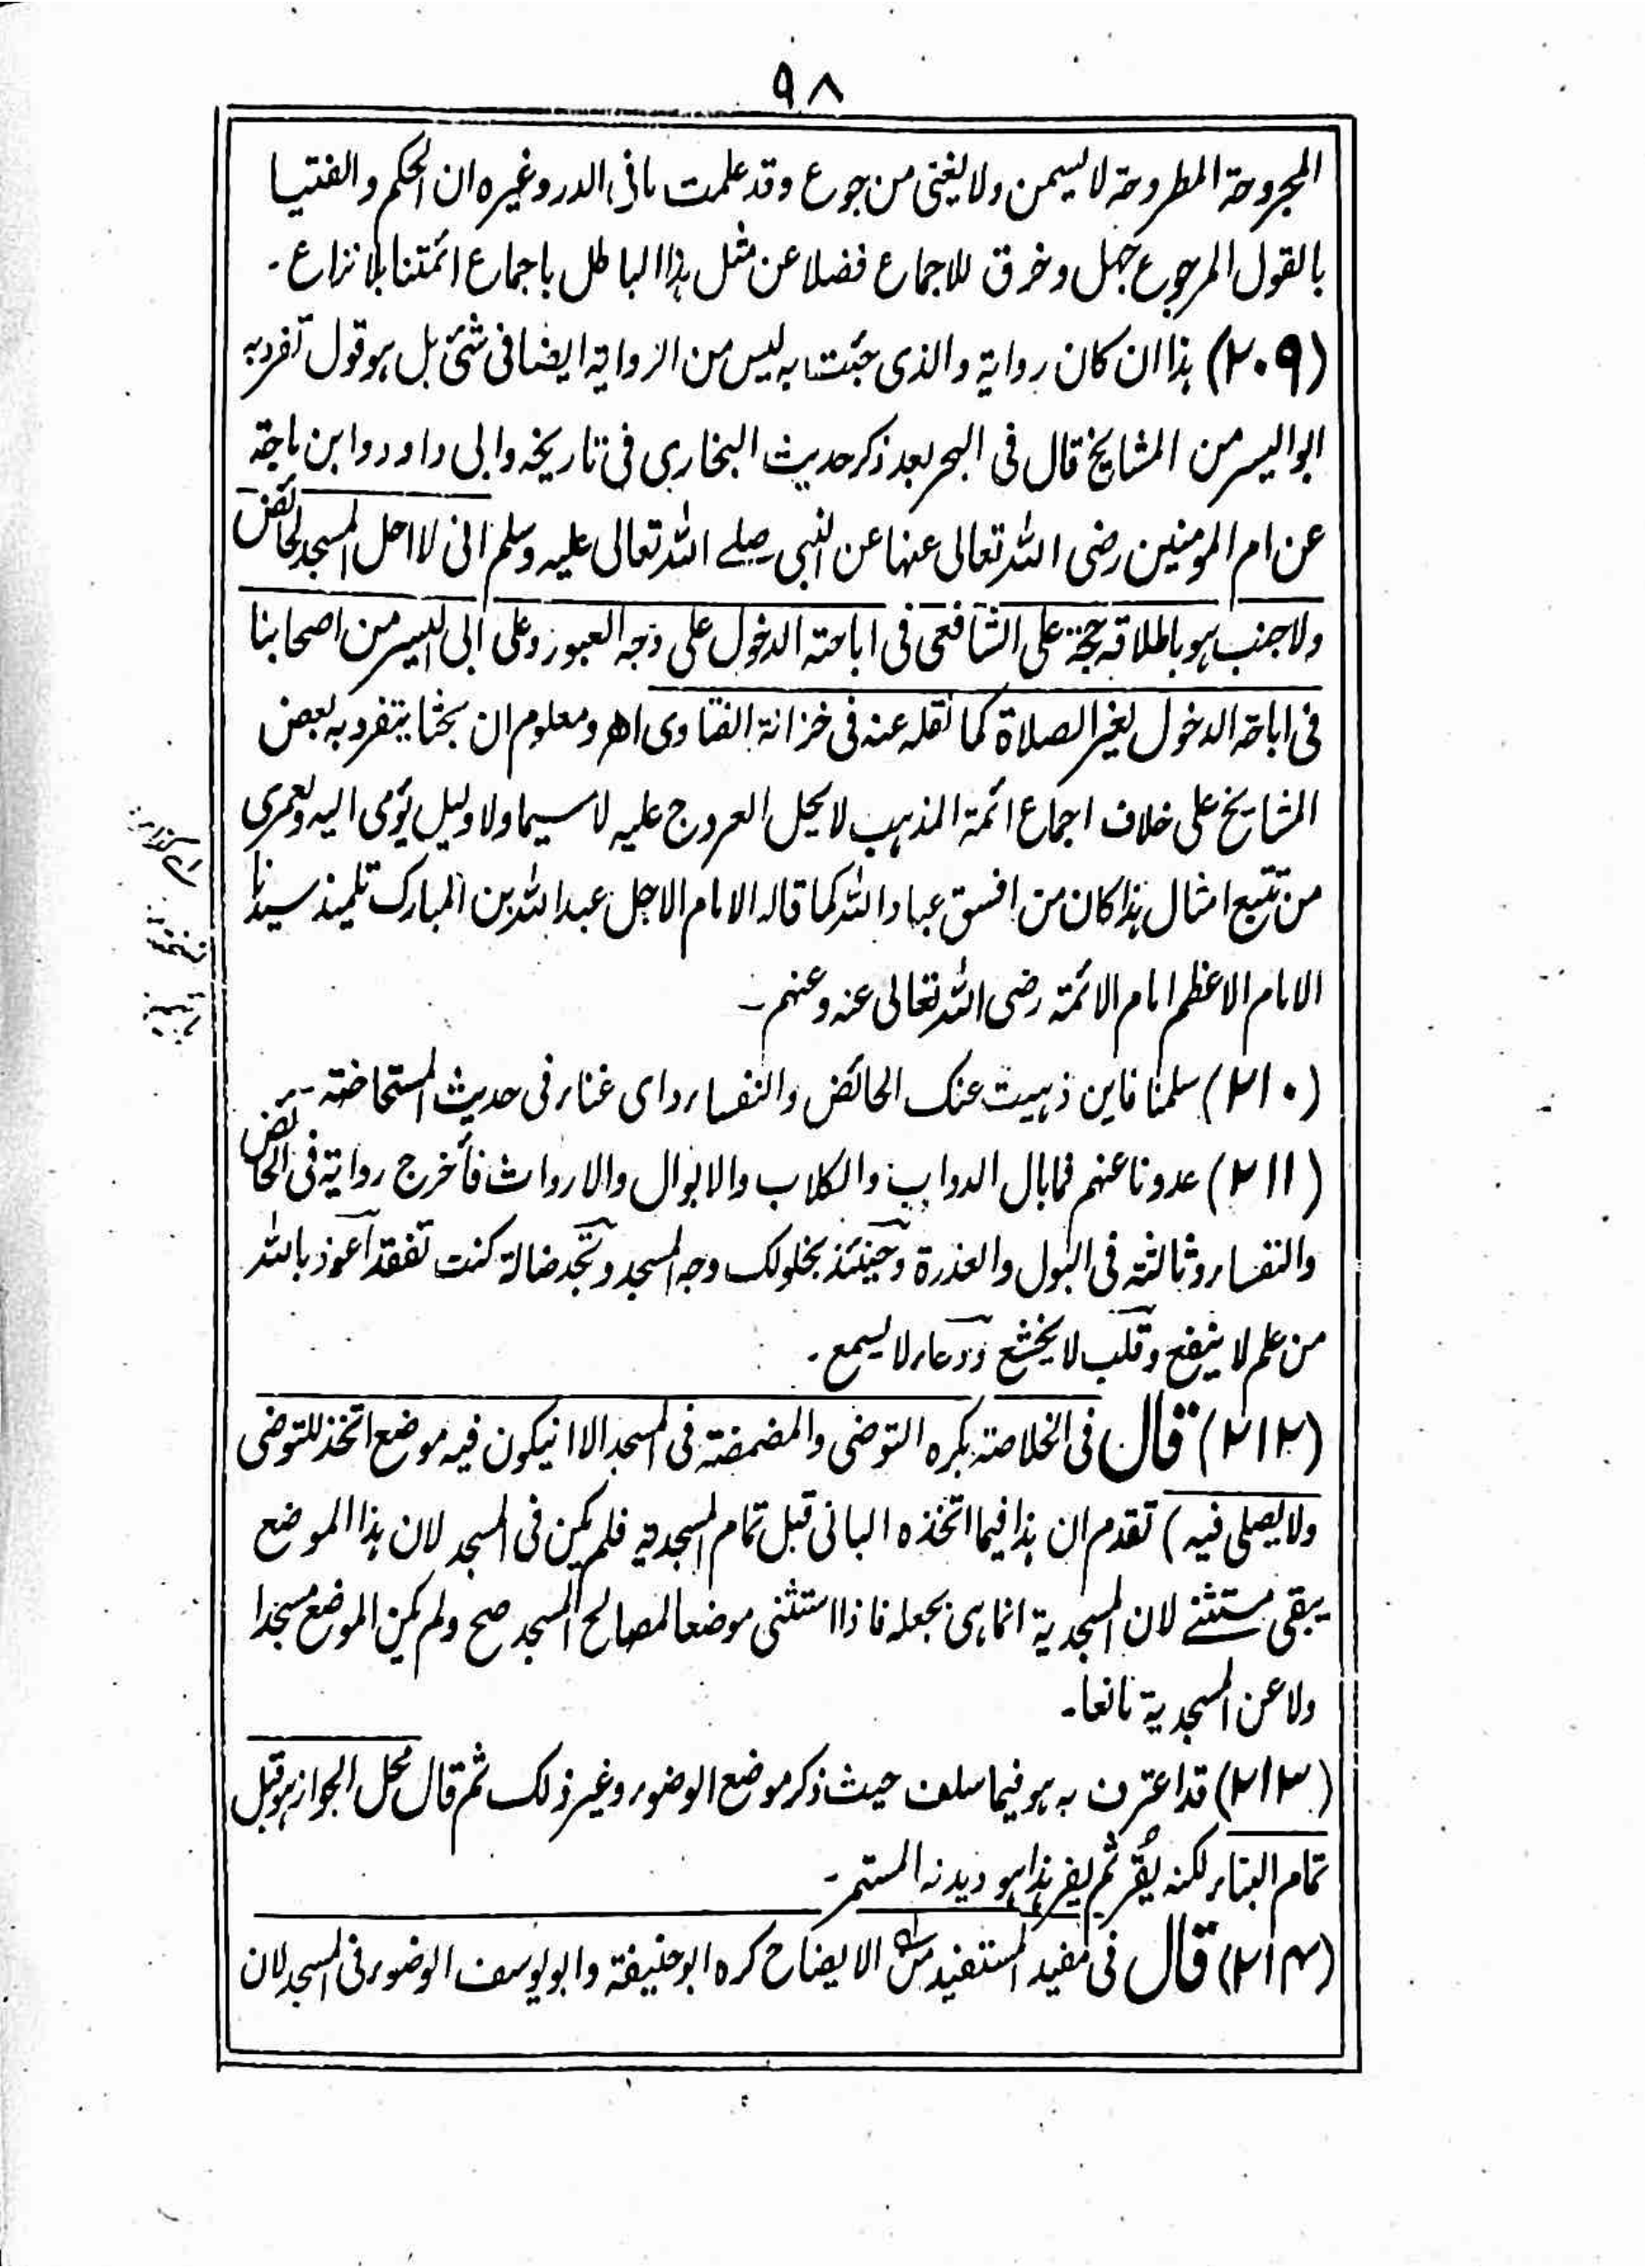 ٩٨
المجروحة المطروحة لا يسمن ولا يغنى من جوع وقد علمت ما فى الدر وغيره ان الحكم والفتيا
بالقول المرجوع جهل وخرق للاجماع فضلا عن مثل هذا الباطل باجماع ائمتنا بلا نزاع ـ
(٢٠٩) هذا ان كان رواية والذى جئت به ليس من الرواية ايضا فى شئ بل هو قول تفرد به
ابو اليسر من المشايخ قال فى البحر بعد ذكر حديث البخارى فى تاريخه وابى داود وابن ماجة
عن ام المومنين رضى الله تعالى عنها عن النبى صلے الله تعالى عليه وسلم انى لا احل المسجد لحائض
ولا جنب هو باطلاقه حجة على الشافعى فى اباحته الدخول على وجه العبور وعلى ابى اليسر من اصحابنا
فى اباحة الدخول لغير الصلاة كما نقله عنه فى خزانة الفتاوى اھ ومعلوم ان بحثا يتفرد به بعض
المشايخ على خلاف اجماع ائمة المذهب لا يحل العروج عليه لا سيما ولا دليل يؤمى اليه ولعمرى
من تتبع امثال هذا كان من افسق عباد الله كما قاله الامام الاجل عبد الله بن المبارك تلميذ سيدنا
الامام الاعظم امام الائمة رضى الله تعالى عنه وعنهم ـ
(٢١٠) سلمنا فاين ذهبيت عنك الحائض والنفساء واى غناء فى حديث المستحاضة ـ
(٢١١) عدونا عنهم فما بال الدواب والكلاب والابوال والارواث فأخرج رواية فى الحائض
والنفساء وثالثه فى البول والعذرة وحينئذ يخلو لك وجه المسجد وتجد ضالة كنت تفقد أعوذ بالله
من علم لا ينفع وقلب لا يخشع ودعاء لا يسمع ـ
(٢١٢) قال فى الخلاصة يكره التوضى والمضمضة فى المسجد الا ان يكون فيه موضع اتخذ للتوضى
ولا يصلى فيه) تقدم ان هذا فيما اتخذه البانى قبل تمام المسجدية فلم يكن فى المسجد لان هذا الموضع
يبقى مستثنے لان المسجدية انما هى بجعله فاذا استثنى موضعا لمصالح المسجد صح ولم يكن الموضع مسجدا
ولا عن المسجدية مانعا ـ
(٢١٣) قد اعترف به هو فيما سلف حيث ذكر موضع الوضوء وغير ذلك ثم قال محل الجواز هو قبل
تمام البناء لكنه يُقر ثم يفر هذا هو ديدنه المستمر ـ
(٢١٤) قال فى مفيد المستفيد الايضاح كره ابو حنيفة وابو يوسف الوضوء فى المسجد لان